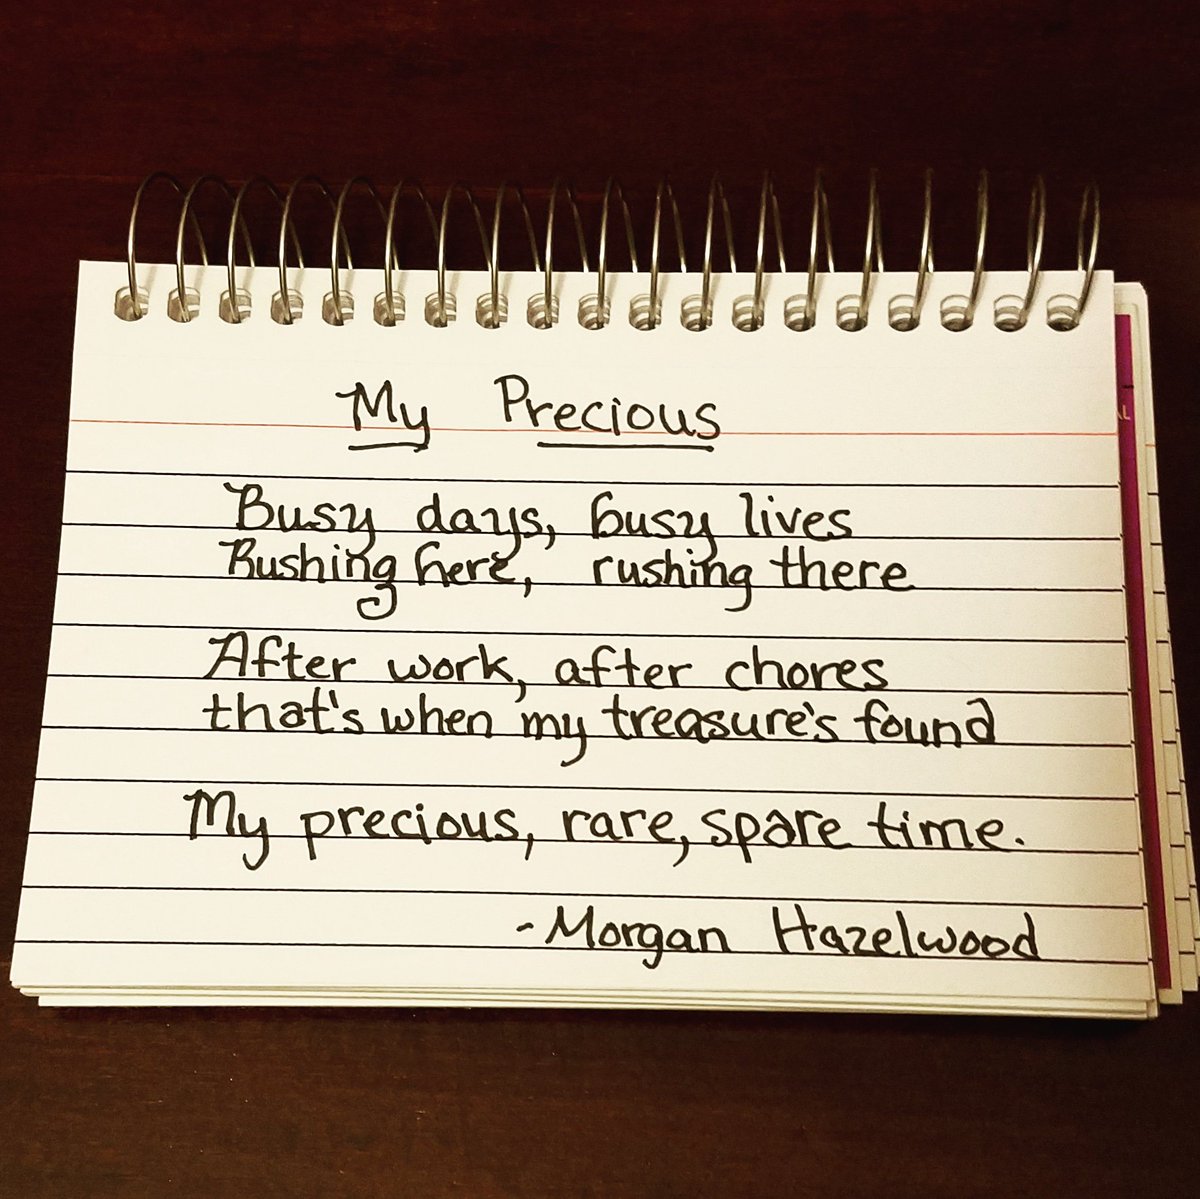 My Precious
Busy days, busy lives
Rushing here, rushing there
After work, after chores
that's when my treasure's found
My precious, rare, spare time.
- Morgan Hazelwood